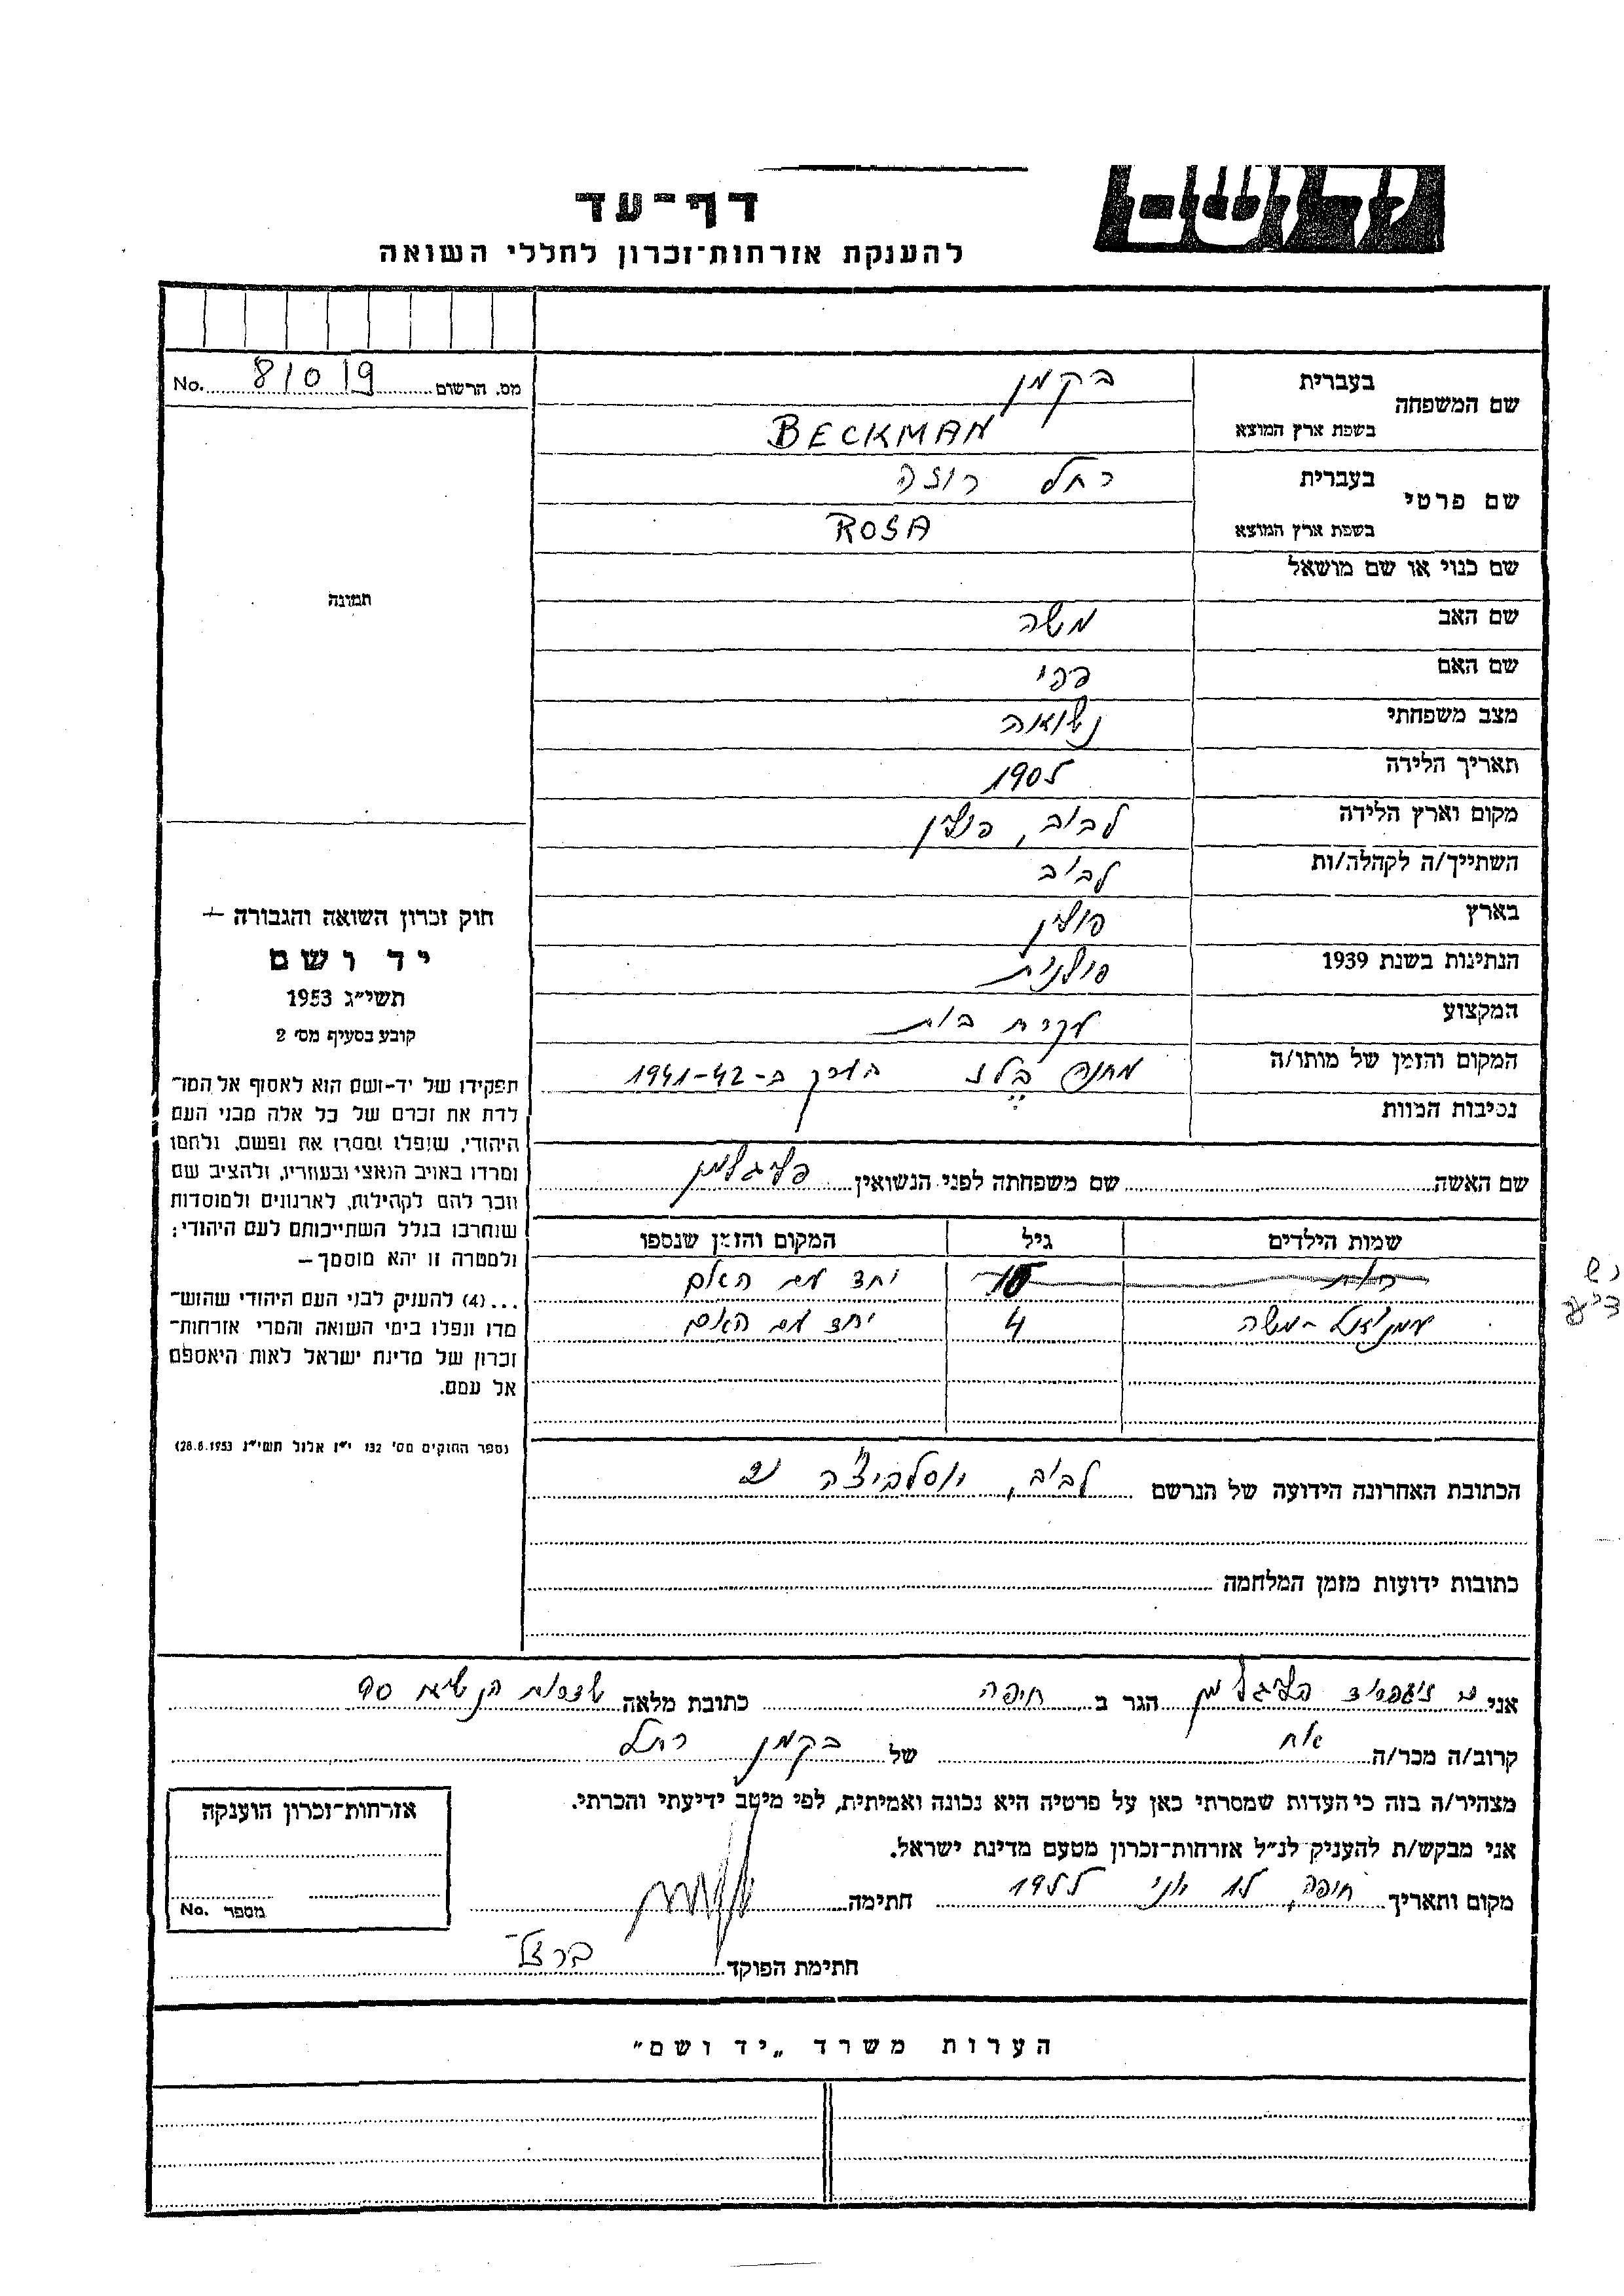 ד ושם
דף־עד
להענקת אזרחות־זכרון לחללי השואה
מס. הרשום 81019 No.
שם המשפחה
בעברית בקמן
בשפת ארץ המוצא BECKMAN
שם פרטי
בעברית רחל רוזה
בשפת ארץ המוצא ROSA
שם כנוי או שם מושאל
שם האב משה
שם האם פפי
מצב משפחתי נשואה
תאריך הלידה 1905
מקום וארץ הלידה לבוב, פולין
השתייך/ה לקהלה/ות לבוב
בארץ פולין
הנתינות בשנת 1939 פולנית
המקצוע עקרת בית
המקום והזמן של מותו/ה מחנה בלז הערך ב-1941-42
נסיבות המוות
שם האשה שם משפחתה לפני הנשואין פליגלמן
שמות הילדים גיל המקום והזמן שנספו
רות 10 יחד עם האם
עמנואל-משה 4 יחד עם האם
הכתובת האחרונה הידועה של הנרשם לבוב,
כתובות ידועות מזמן המלחמה
תמונה
חוק זכרון השואה והגבורה —
יד ושם
תשי״ג 1953
קובע בסעיף מס׳ 2
תפקידו של יד־ושם הוא לאסוף אל המו־
לדת את זכרם של כל אלה מבני העם
היהודי, שנפלו ומסרו את נפשם, נלחמו
ומרדו באויב הנאצי ובעוזריו, ולהציב שם
וזכר להם לקהילות, לארגונים ולמוסדות
שנחרבו בגלל השתייכותם לעם היהודי;
ולמטרה זו יהא מוסמך—
...(4) להעניק לבני העם היהודי שהוש־
מדו ונפלו בימי השואה והמרי אזרחות־
זכרון של מדינת ישראל לאות היאספם
אל עמם.
(ספר החוקים מס׳ 132 י״ז אלול תשי״ג 28.8.1953)
אני זיגפריד פליגלמן הגר ב חיפה כתובת מלאה שדרות הנשיא 90
קרוב/ה מכר/ה אח של בקמן רחל
מצהיר/ה בזה כי העדות שמסרתי כאן על פרטיה היא נכונה ואמיתית, לפי מיטב ידיעתי והכרתי.
אני מבקש/ת להעניק לנ״ל אזרחות־זכרון מטעם מדינת ישראל.
מקום ותאריך חיפה, יוני 1955 חתימה
חתימת הפוקד ברזל
אזרחות־זכרון הוענקה
מספר No.
הערות משרד „יד ושם״